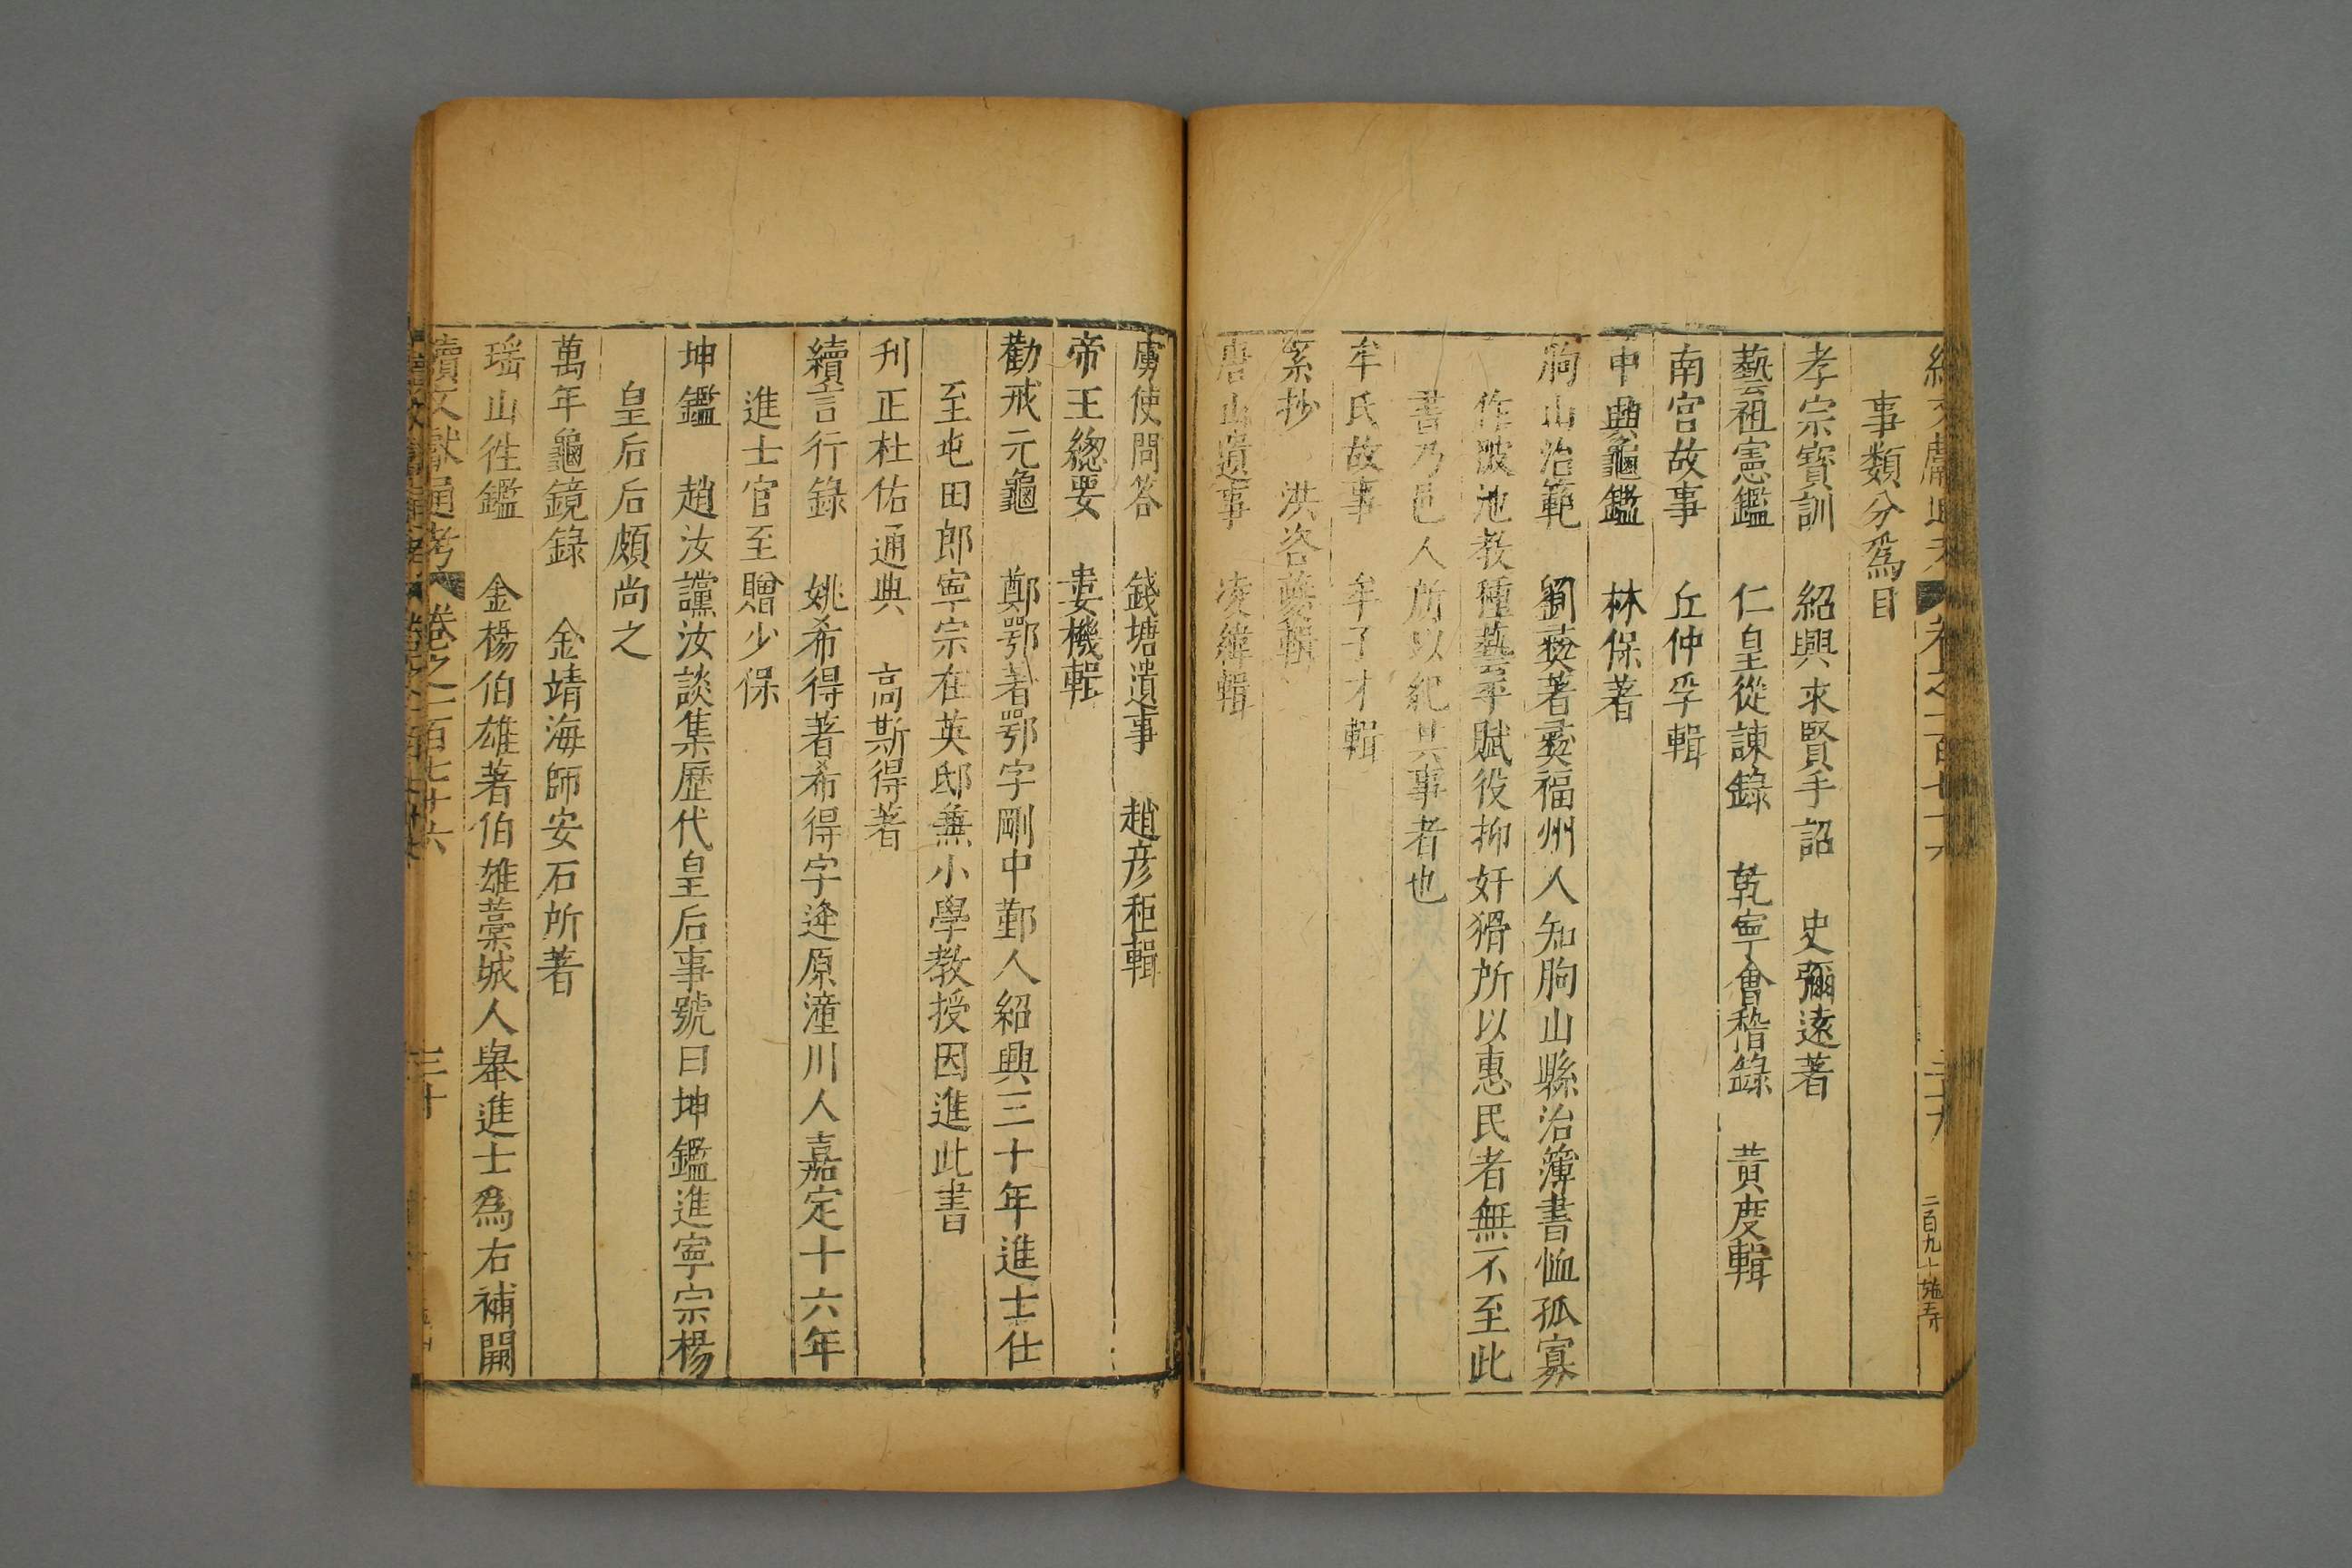 事類分爲目
孝宗寶訓　紹興求賢手詔　史彌遠著
藝祖憲鑑　仁皇從諫錄　乾寧會稽錄　黄度輯
南宫故事　丘仲孚輯
中興龜鑑　林保著
朐山治範　劉彞著彞福州人知朐山縣治簿書恤孤寡
作陂池教種藝平賦役抑奸猾所以惠民者無不至此
書乃邑人所以紀其事者也
牟氏故事　牟子才輯
系抄　洪咨夔輯
唐山遺事　凌緯輯
虜使問答　錢塘遺事　趙彦秬輯
帝王總要　婁機輯
勸戒元龜　鄭鄂著鄂字剛中鄞人紹興三十年進士仕
至屯田郎寧宗在英邸兼小學教授因進此書
刋正杜佑通典　高斯得著
續言行錄　姚希得著希得字逢原潼川人嘉定十六年
進士官至贈少保
坤鑑　趙汝讜汝談集歷代皇后事號曰坤鑑進寧宗楊
皇后后頗尚之
萬年龜鏡錄　金靖海師安石所著
瑶山徃鑑　金楊伯雄著伯雄藁城人舉進士爲右補闕
續文獻通考　卷之一百七十六　三十